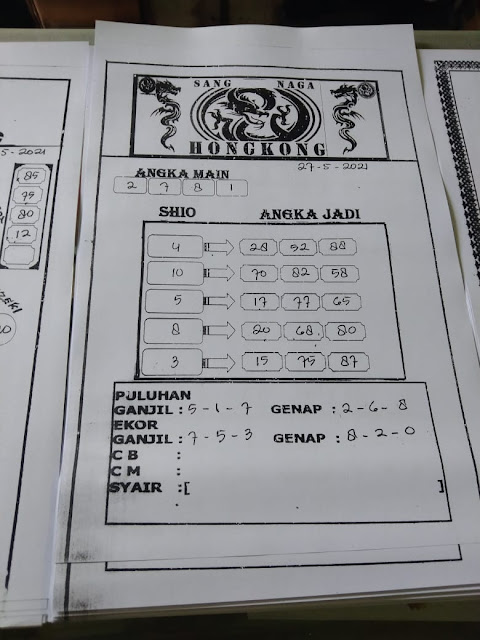 SANG NAGA
HONGKONG
27-5-2021
ANGKA MAIN
2 7 8 1
SHIO ANGKA JADI
4 28 52 88
10 70 82 58
5 17 77 65
8 20 68 80
3 15 75 87
PULUHAN
GANJIL : 5-1-7 GENAP : 2-6-8
EKOR
GANJIL : 7-5-3 GENAP : 8-2-0
C B :
C M :
SYAIR :[ ]
5-2021
85
75
80
12